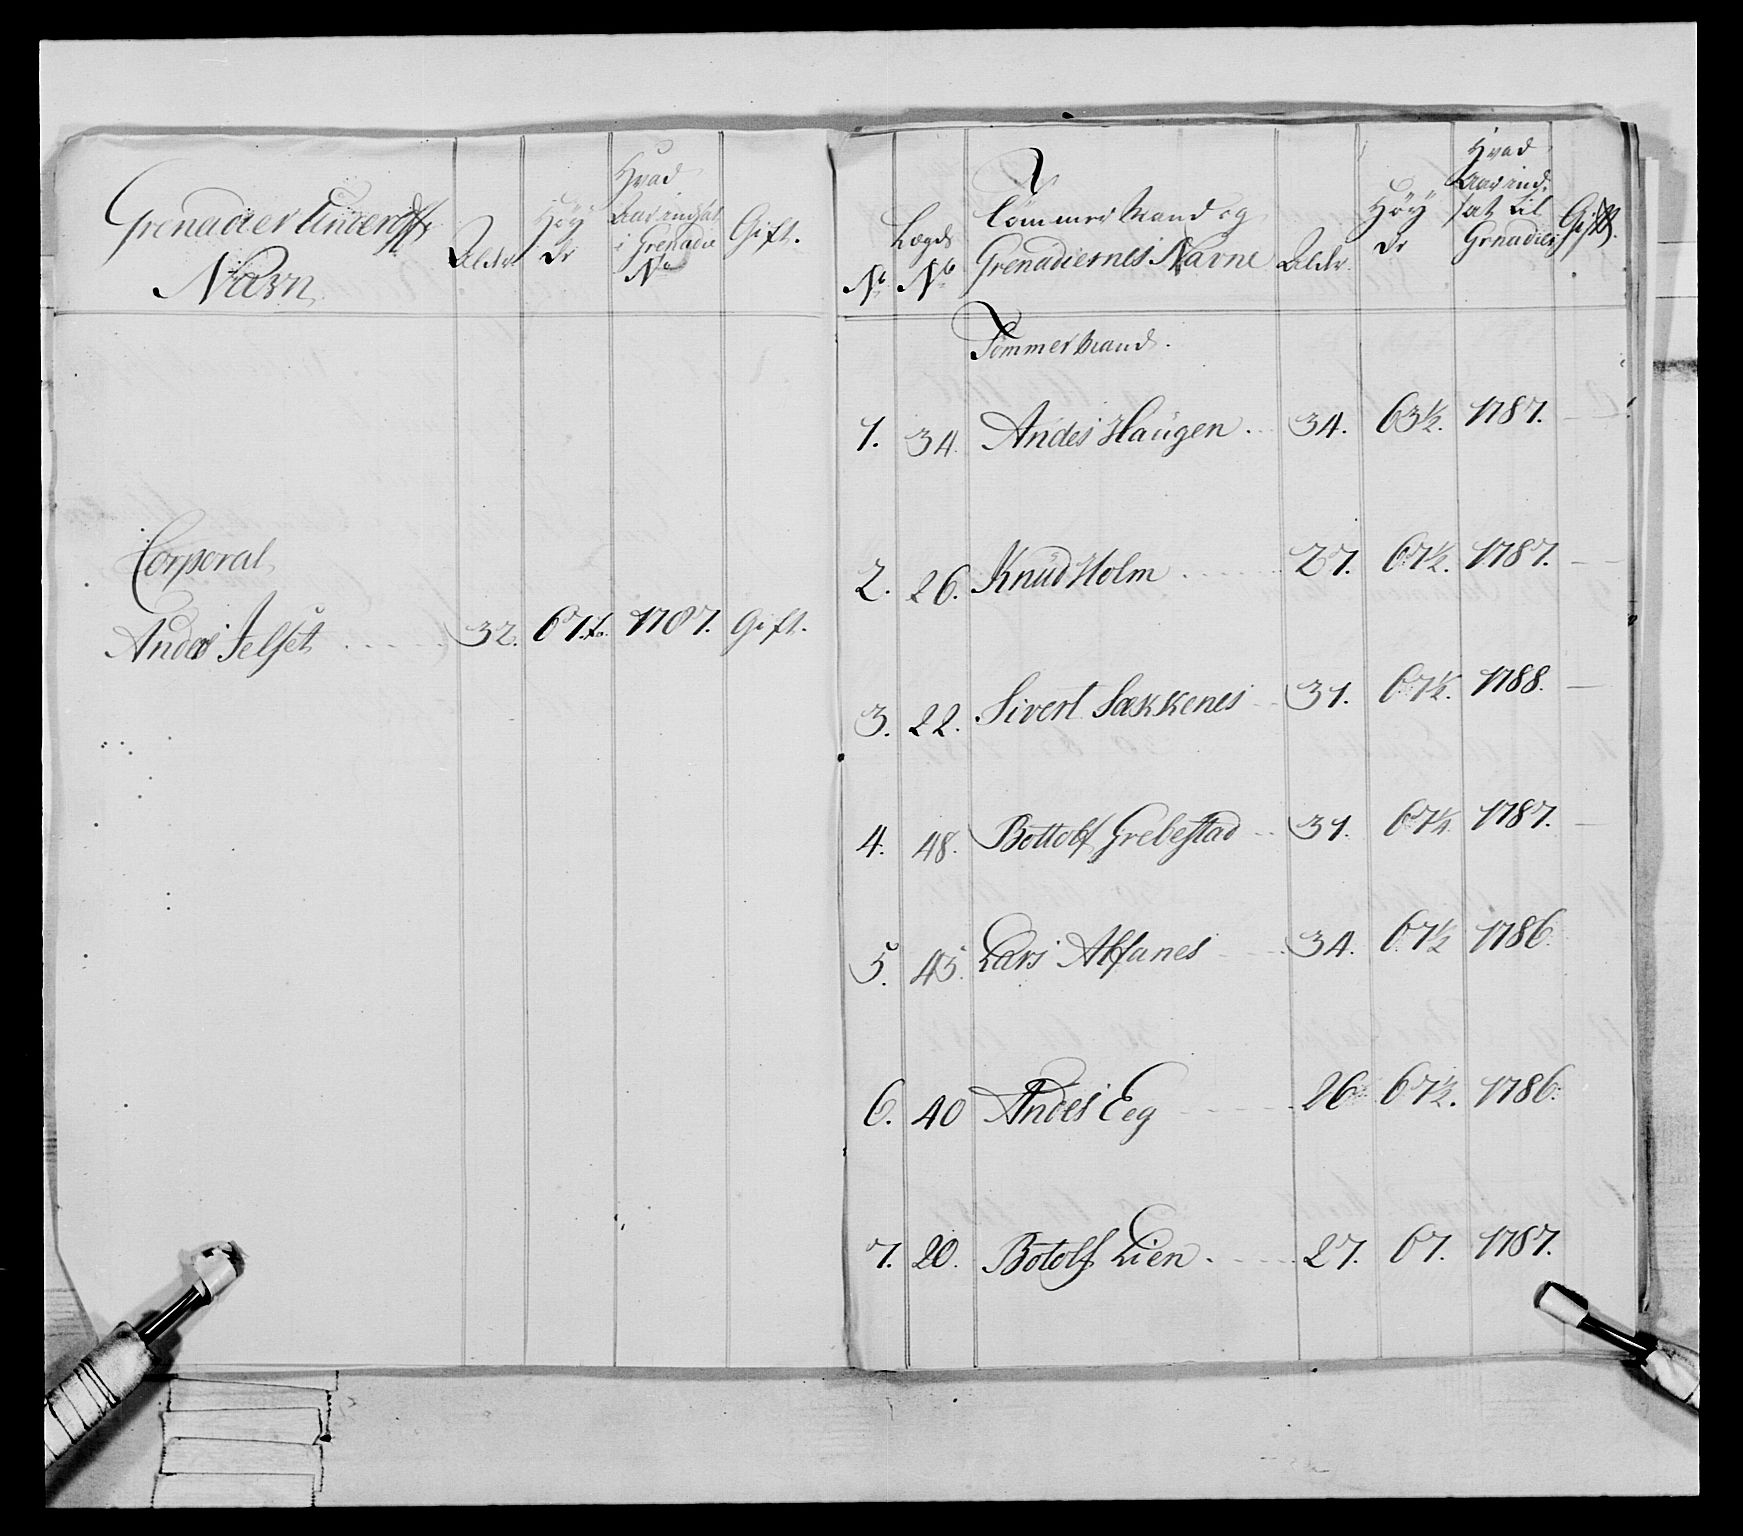 Grenadeer Underoff:
Navn
Alder
Høÿ
dr
Hvad
Aar indsat
i Grenadr
No
Gift.
Corporal
Anders Jelset ..... 32. 67.½. 1787. Gift.
No
Lægds
No
Tømmermænd og
Grenadiernes Navne
Alder.
Høÿ
dr
Hvad
Aar ind-
sat til
Grnadier
Gift.
Tømmermænd.
1. 34. Andes Haugen . 34. 63½. 1787. —
2. 26. Knud Holm ..... 27. 67½. 1787. —
3. 22. Sivert Sækkenes .. 31. 67½. 1788. —
4. 48. Bottolf Grebestad .. 31. 67¼. 1787. —
5. 45. Lars Alfanes ... 34. 67½ 1786.
6. 40 Andes Eeg ..... 26. 67½. 1786.
7. 20. Botolf Lien ..... 27. 67. 1787.